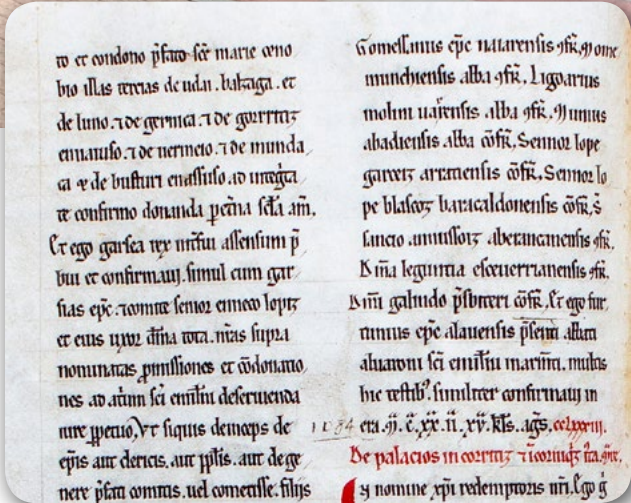 to et condono p̃fato sc̃e marie ceno
bio illas tercias de udai. balzaga. et
de luno. ⁊ de gernica ⁊ de gorritiz
⁊ de uermeio. ⁊ de munda
ca ⁊ de busturi ad integ̃
te confirmo donanda p̱etña sc̃la am̃.
Et ego garsea rex assensum p̃
bui et confirmaui. simul cum gar
sias ep̃c. ⁊ comite senior enneco lopiz
et eius uxor dña tota. ñras supra
nominatas p̱missiones et cõdonatio
nes ad atrium sc̃i emilĩu deseruienda
iure p̱petuo. Vt siquis deinceps de
ep̃is aut clericis. aut pp̃lis. aut de ge
nere p̃fati comitis. uel comitisse. filiis
Gomessanus ep̃c naiarensis ꝯfr̃. M ome
munchiensis alba ꝯfr̃. Ligoarius
molini alba ꝯfr̃. M unius
abadiensis alba cõfr̃. Sennor lope
garceiz arratiensis cõfr̃. Sennor lo
pe blascoz baracaldonensis cõfr̃. S̃
sancio ꝯfr̃.
D m̃a leguntia ꝯfr̃.
D m̃i galindo p̃sbiteri cõfr̃. Et ego for
tunius ep̃c alauensis p̃senti abbati
aluaroni sc̃i emilĩu multis
hic testib⁹. similiter confirmaui in
1084 era. M̃. C̃. XX. II. XV. kl̃s. ag̃s. cclxxxiii.
De palacios in corritiz
y nomine xp̃i redemptoris nr̃i. Ego g̃